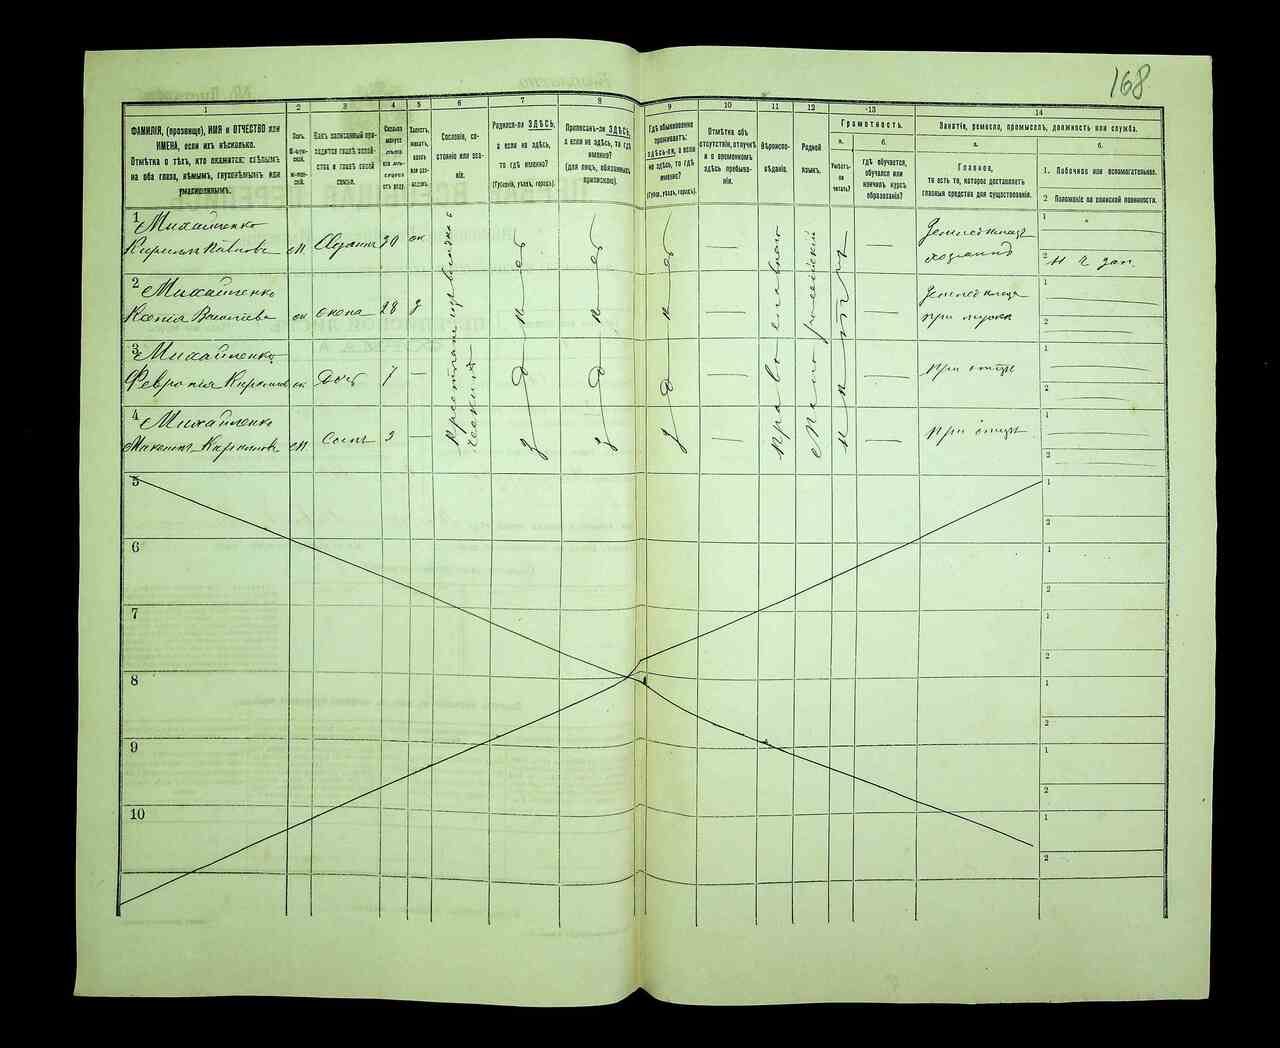 168
1
2
3
4
5
6
7
8
9
10
11
12
13
14
ФАМИЛІЯ, (прозвище), ИМЯ и ОТЧЕСТВО или
ИМЕНА, если ихъ нѣсколько.
Отмѣтка о тѣхъ, кто окажется: слѣпымъ
на оба глаза, нѣмымъ, глухонѣмымъ или
умалишеннымъ.
Полъ.
М-мужской.
Ж-женскій.
Какъ записанный приходится главѣ хозяйства и главѣ своей семьи.
Сколько минуло лѣтъ или мѣсяцевъ отъ роду.
Холостъ, женатъ, вдовъ или разведенъ.
Сословіе, состояніе или званіе.
Родился-ли ЗДѢСЬ,
а если не здѣсь,
то гдѣ именно?
(Губернія, уѣздъ, городъ).
Приписанъ-ли ЗДѢСЬ,
а если не здѣсь, то гдѣ
именно?
(для лицъ, обязанныхъ
припискою).
Гдѣ обыкновенно
проживаетъ:
здѣсь-ли, а если
не здѣсь, то гдѣ
именно?
(Губер., уѣздъ, городъ).
Отмѣтка объ
отсутствіи, отлучкѣ
и о временномъ
здѣсь пребываніи.
Вѣроисповѣданіе.
Родной
языкъ.
Грамотность.
а.
б.
Умѣетъ-ли
читать?
гдѣ обучается,
обучался или
кончилъ курсъ
образованія?
Занятіе, ремесло, промыселъ, должность или служба.
а.
б.
Главное,
то есть то, которое доставляетъ
главныя средства для существованія.
1. Побочное или вспомогательное.
2 Положеніе по воинской повинности.
1 Михайленко
Кирилъ Павловъ м Хозяинъ 30 ж
Крестьяне изъ владѣльческихъ
здѣсь здѣсь здѣсь
Православнаго
Малороссійскій
нѣтъ
Земледѣлецъ
хозяинъ
1
2
2 Михайленко
Ксенія жена 28 з
Земледѣлица
при мужѣ
1
2
3 Михайленко
дочь 7 —
при отцѣ
1
2
4 Михайленко
Максимъ Кириловъ м Сынъ 3 —
при отцѣ
1
2
5
1
2
6
1
2
7
1
2
8
1
2
9
1
2
10
2